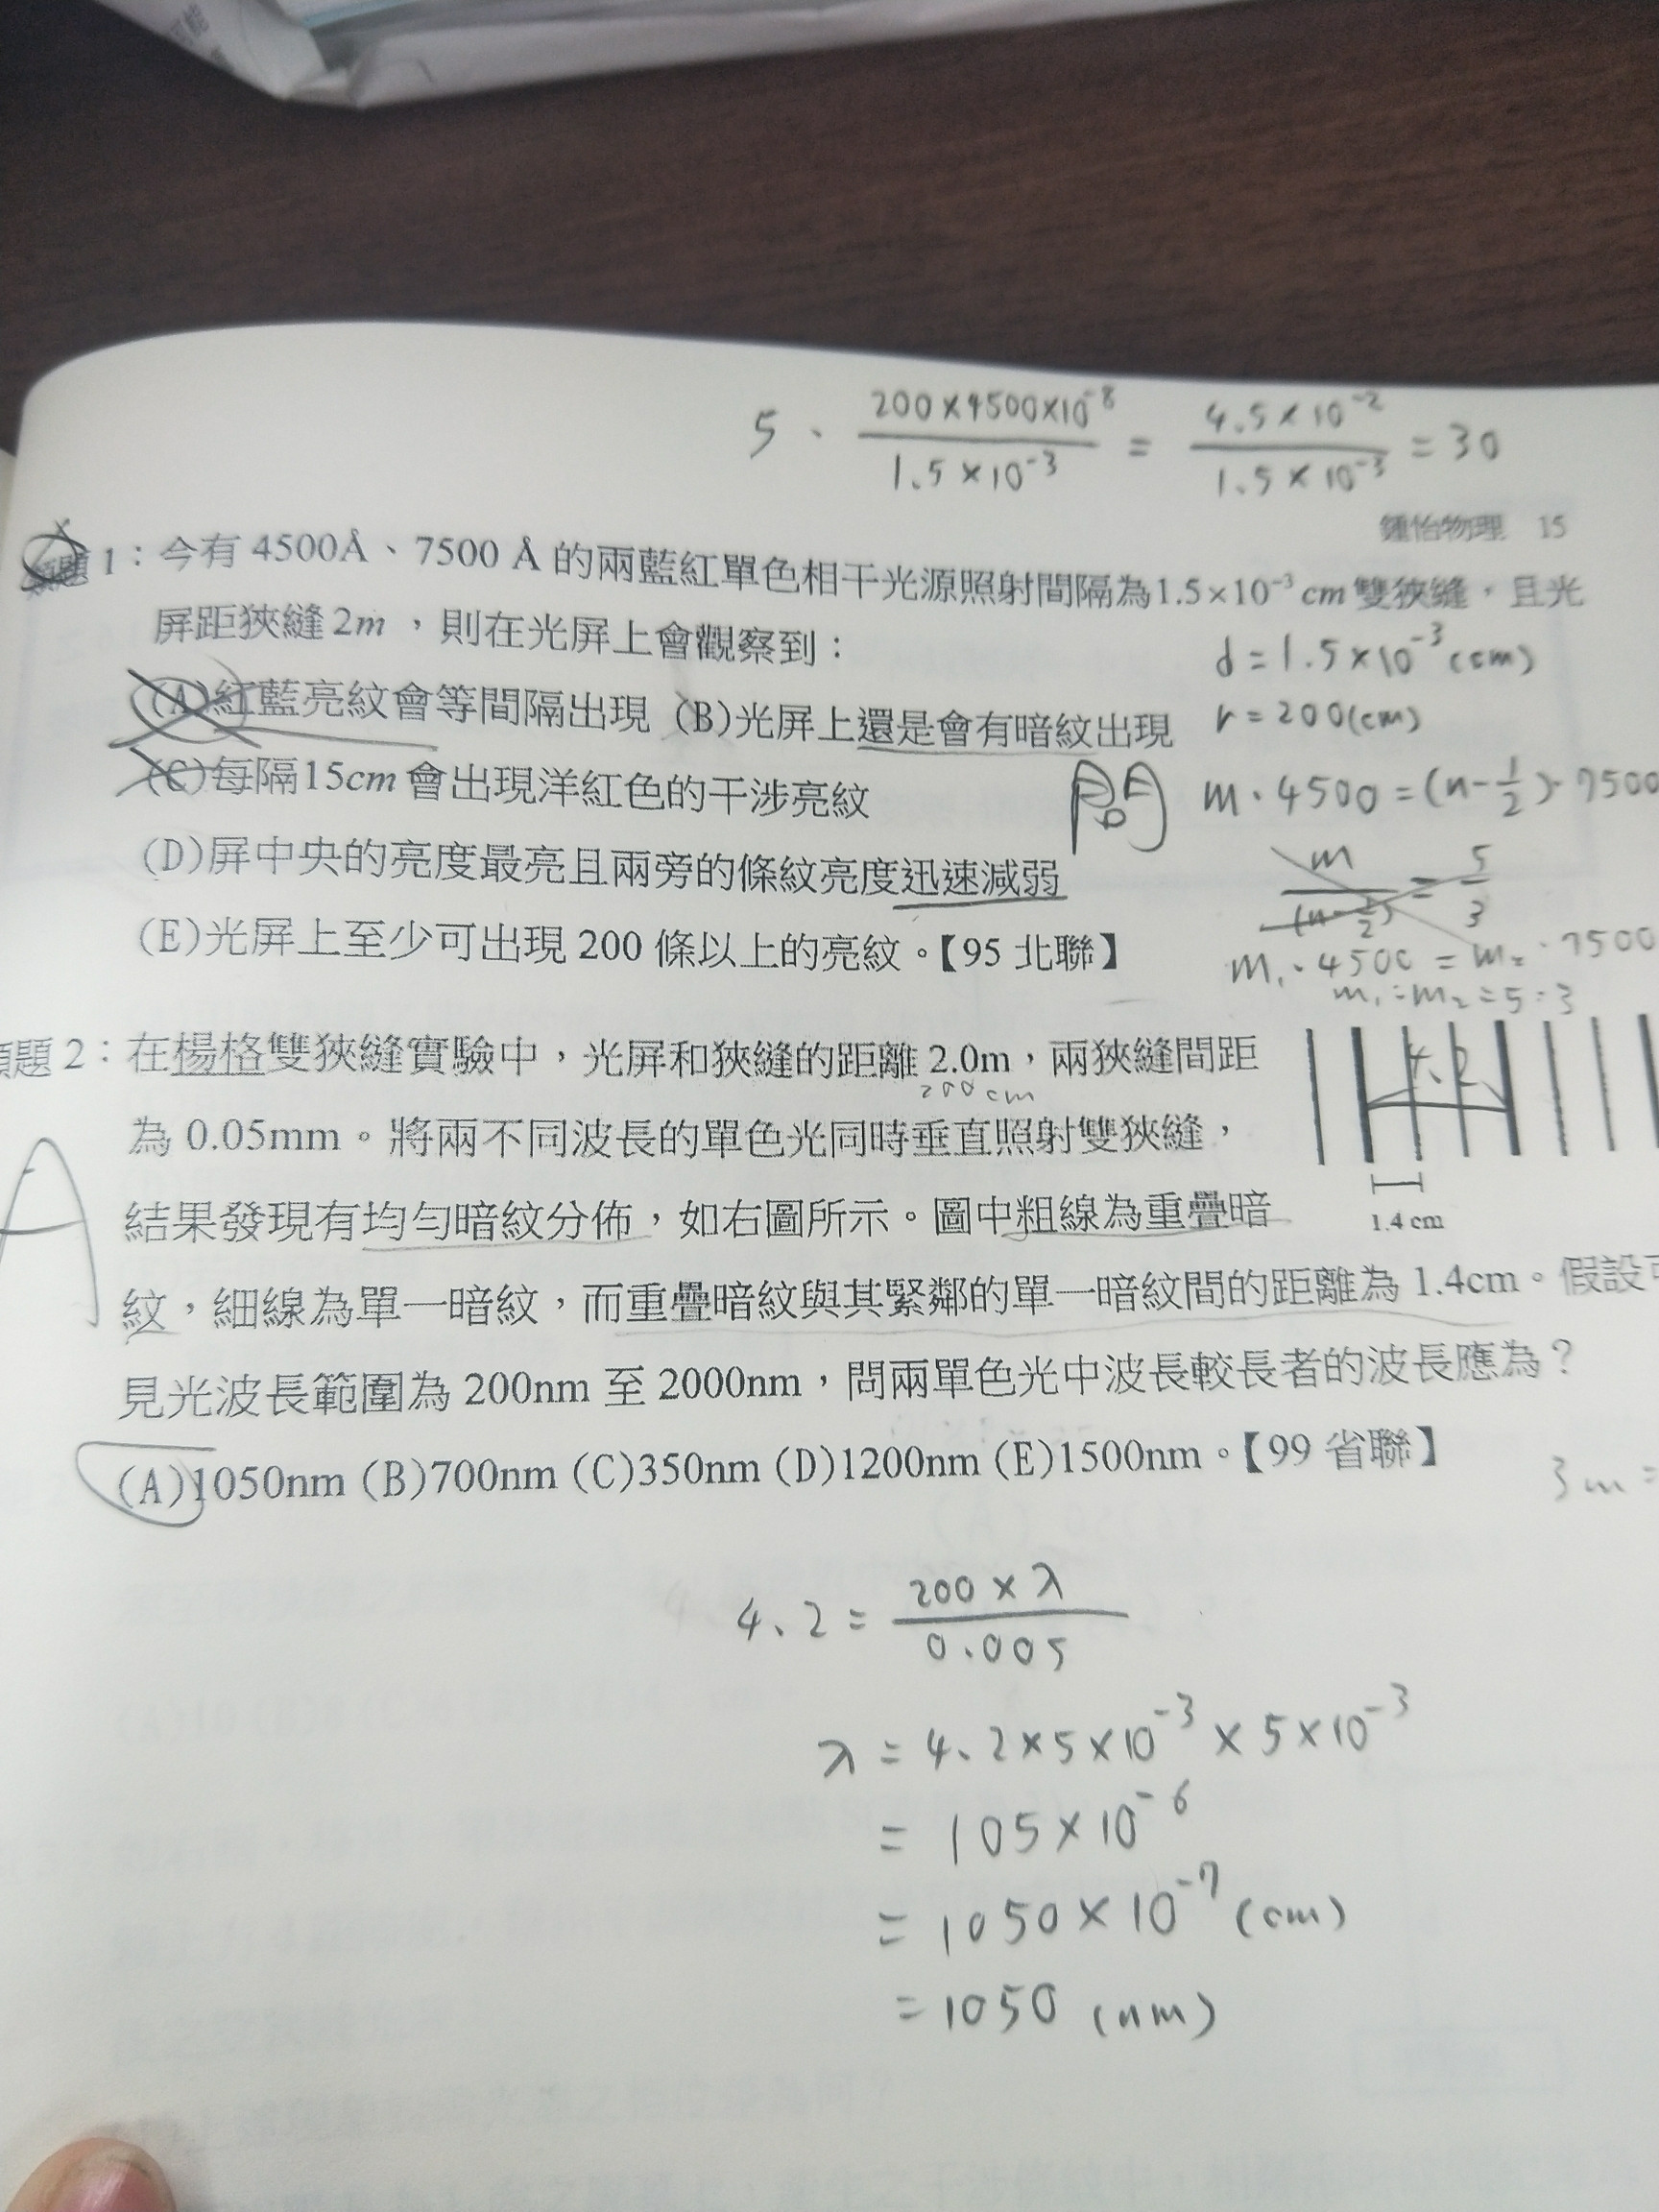 5 · 200×4500×10⁻⁸ / 1.5×10⁻³ = 4.5×10⁻² / 1.5×10⁻³ = 30
鍾怡物理 15
類題1：今有 4500Å、7500 Å 的兩藍紅單色相干光源照射間隔為1.5×10⁻³ cm 雙狹縫，且光
屏距狹縫 2m ，則在光屏上會觀察到：
d = 1.5×10⁻³ (cm)
(A)紅藍亮紋會等間隔出現 (B)光屏上還是會有暗紋出現
r = 200(cm)
(C)每隔15cm 會出現洋紅色的干涉亮紋
問 m · 4500 = (n-1/2) · 7500
(D)屏中央的亮度最亮且兩旁的條紋亮度迅速減弱
m / (n-1/2) = 5/3
(E)光屏上至少可出現 200 條以上的亮紋。【95 北聯】
m₁ · 4500 = m₂ · 7500
m₁ : m₂ = 5 : 3
類題 2：在楊格雙狹縫實驗中，光屏和狹縫的距離 2.0m，兩狹縫間距
200cm
4.2
為 0.05mm。將兩不同波長的單色光同時垂直照射雙狹縫，
結果發現有均勻暗紋分佈，如右圖所示。圖中粗線為重疊暗
1.4 cm
A
紋，細線為單一暗紋，而重疊暗紋與其緊鄰的單一暗紋間的距離為 1.4cm。假設可
見光波長範圍為 200nm 至 2000nm，問兩單色光中波長較長者的波長應為？
(A)1050nm (B)700nm (C)350nm (D)1200nm (E)1500nm。【99 省聯】
3m =
4.2 = 200×λ / 0.005
λ = 4.2×5×10⁻³×5×10⁻³
= 105×10⁻⁶
= 1050×10⁻⁷ (cm)
= 1050 (nm)